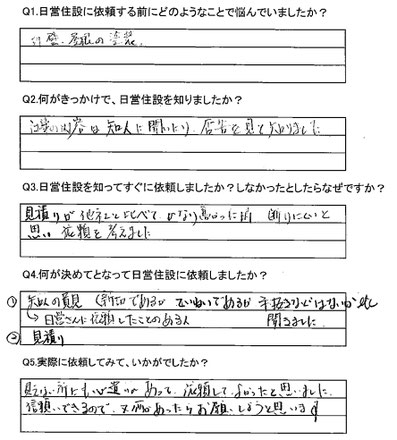 Q1.日営住設に依頼する前にどのようなことで悩んでいましたか？
外壁、屋根の塗装
Q2.何がきっかけで、日営住設を知りましたか？
内容は知人に聞いたり、広告を見て知りました
Q3.日営住設を知ってすぐに依頼しましたか？しなかったとしたらなぜですか？
見積りが他社と比べて かなり高かった 断りにくいと
思い 依頼を考えました
Q4.何が決めてとなって日営住設に依頼しましたか？
① 知人の意見 ていねいである 手抜きなどはない
↳ 日営さんに依頼したことのある人 聞きました
② 見積り
Q5.実際に依頼してみて、いかがでしたか？
見えない所にも心遣いがあって、依頼してよかったと思いました。
信頼いできるので、又何かあったらお願いしようと思います